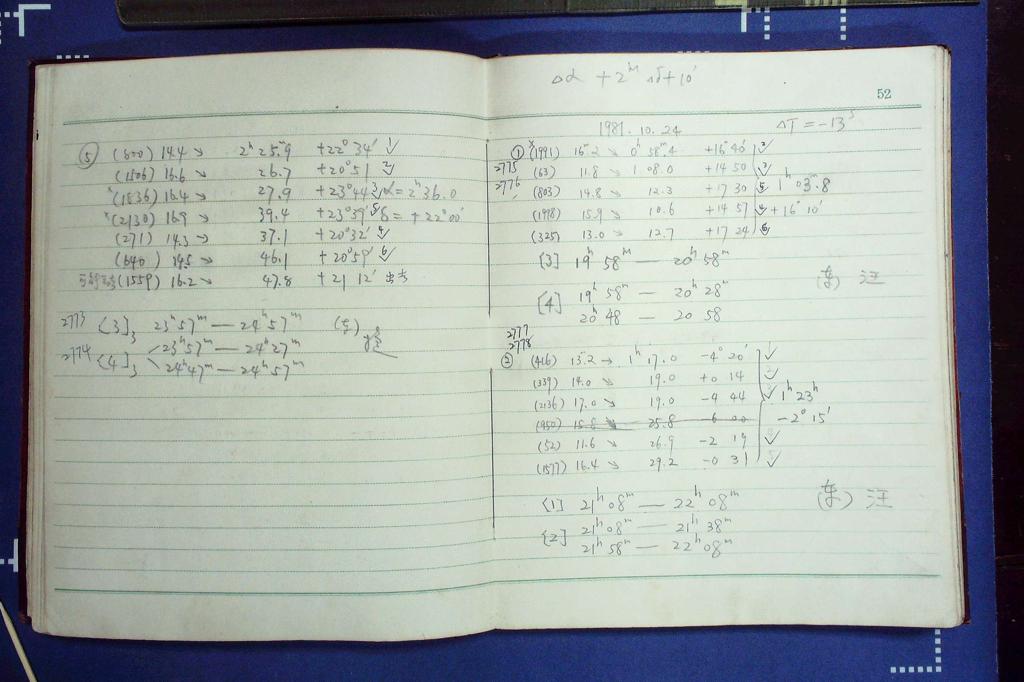 ⑤ (800) 14.4 ↘ 2ʰ 25ᵐ.9 +22° 34′ ✓ 1
(1506) 16.6 ↘ 26.7 +20° 51 ✓ 2
(1536) 16.4 ↘ 27.9 +23° 44 3 α = 2ʰ 36.0
(2130) 16.9 ↘ 39.4 +23° 39′ 5 δ = +22° 00′
(271) 14.3 ↘ 37.1 +20° 32′ ✓ 4
(640) 14.5 ↘ 46.1 +20° 59′ ✓ 6
(1559) 16.2 ↘ 47.8 +21 12′ 出去
2773 [3]₃ 23ʰ 57ᵐ — 24ʰ 57ᵐ
2774 [4]₃ 23ʰ 57ᵐ — 24ʰ 27ᵐ
24ʰ 47ᵐ — 24ʰ 57ᵐ
Δα +2ᵐ Δδ +10′
52
1981. 10. 24 ΔT = −13ˢ
① (1991) 16.2 ↘ 0ʰ 58ᵐ.4 +16° 40′
2775 (63) 11.8 ↘ 1 08.0 +14 50
2776 (803) 14.8 ↘ 12.3 +17 30 1ʰ 03ᵐ.8
(1998) 15.9 ↘ 10.6 +14 57 +16° 10′
(325) 13.0 ↘ 12.7 +17 24
[3] 19ʰ 58ᵐ — 20ʰ 58ᵐ
[4] 19ʰ 58ᵐ — 20ʰ 28ᵐ 汪
20ʰ 48 — 20 58
2777
2778
② (416) 13.2 → 1ʰ 17.0 −4° 20′ ✓
(339) 14.0 ↘ 19.0 +0 14 ✓
(2136) 17.0 ↘ 19.0 −4 44 ✓ 1ʰ 23ʰ
(950) 15.8 25.8 −6 00 −2° 15′
(52) 11.6 ↘ 26.9 −2 19 ✓
(1577) 16.4 ↘ 29.2 −0 31 ✓
[1] 21ʰ 08ᵐ — 22ʰ 08ᵐ 汪
[2] 21ʰ 08ᵐ — 21ʰ 38ᵐ
21ʰ 58ᵐ — 22ʰ 08ᵐ